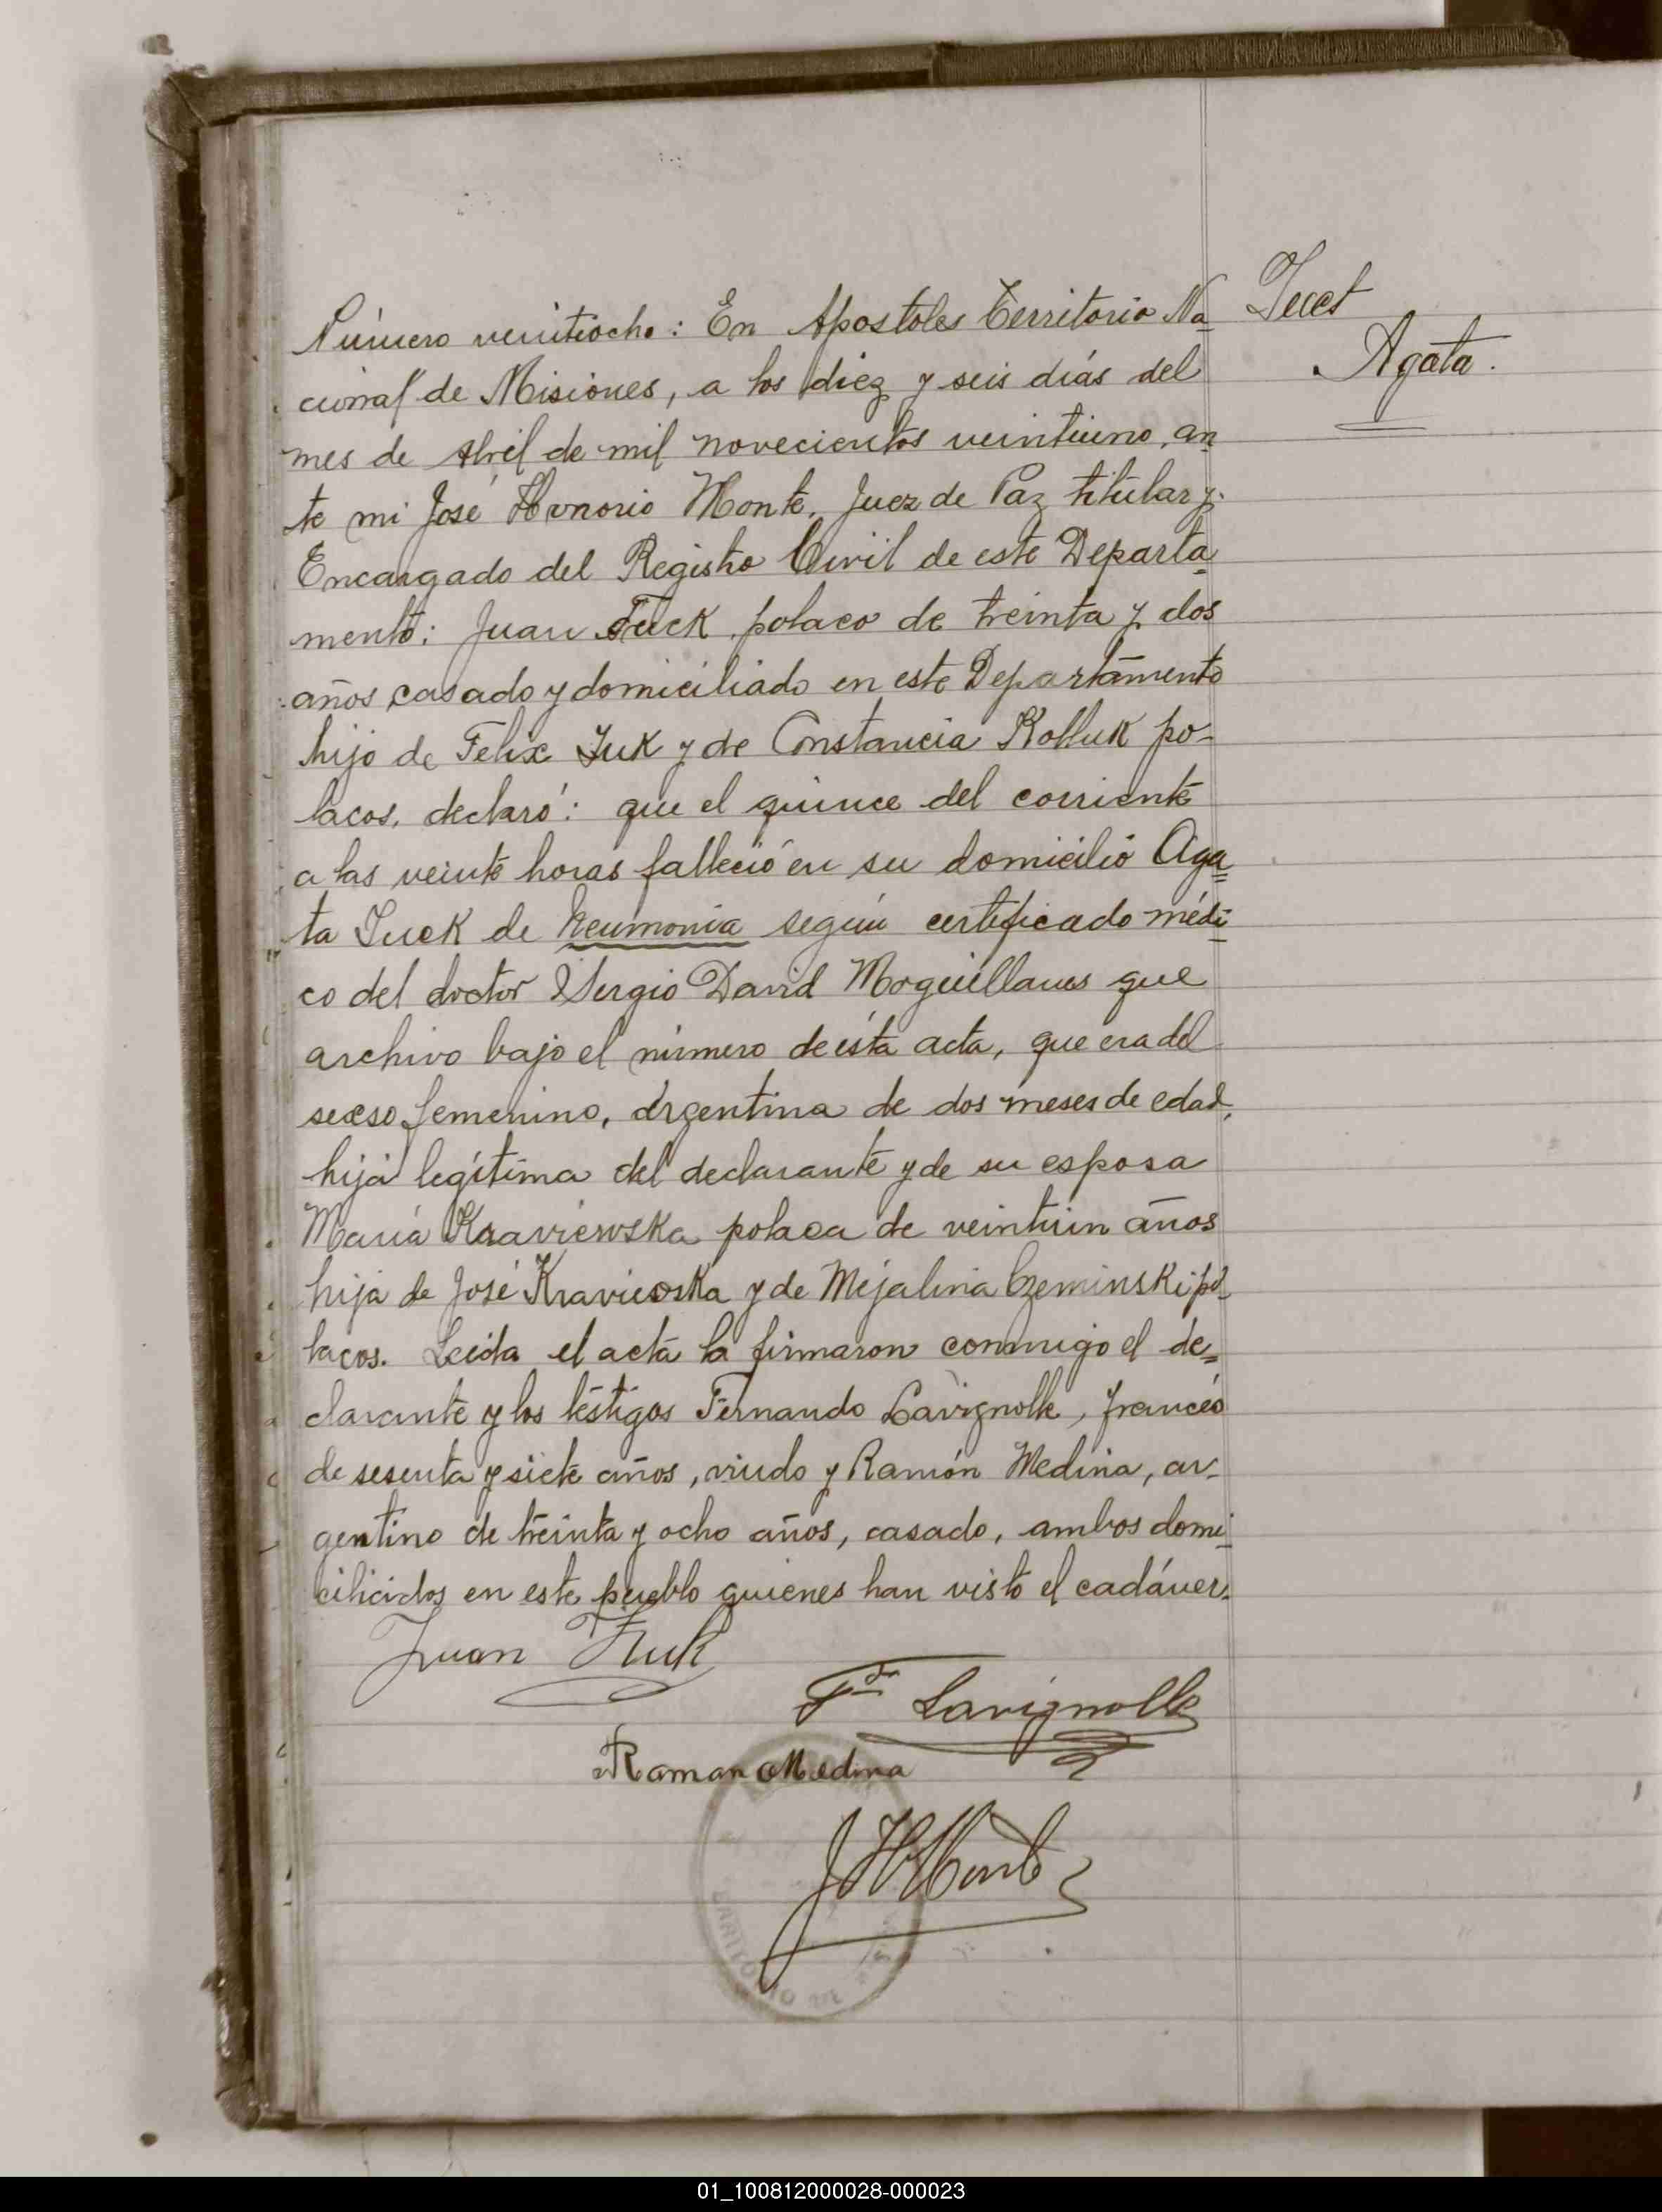 Número veintiocho: En Apostoles Territorio Na
cional de Misiones, a los diez y seis días del
mes de Abril de mil novecientos veintiuno, an
te mi José Honorio Monte, Juez de Paz titular y
Encargado del Registro Civil de este Departa
mento: Juan Tuck, polaco de treinta y dos
años casado y domiciliado en este Departamento
hijo de Felix Iuk y de Constancia Kolluk po-
lacos, declaró: que el quince del corriente
a las veinte horas falleció en su domicilio Aga
ta Iuck de Neumonia según certificado médi
co del doctor Sergio David Moguillanes que
archivo bajo el número de ésta acta, que era del
sexso femenino, argentina de dos meses de edad,
hija legítima del declarante y de su esposa
María Kraviewska polaca de veintiun años
hija de José Kravieoska y de Mejalina Czeminski po-
lacos. Leida el acta la firmaron conmigo el de=
clarante y los testigos Fernando Lavignolle, francés
de sesenta y siete años, viudo y Ramón Medina, ar-
gentino de treinta y ocho años, casado, ambos domi
ciliados en este pueblo quienes han visto el cadáver.
Agata.
Juan
Fdo Lavignolle
Raman Medina
J H Monte
01_100812000028-000023